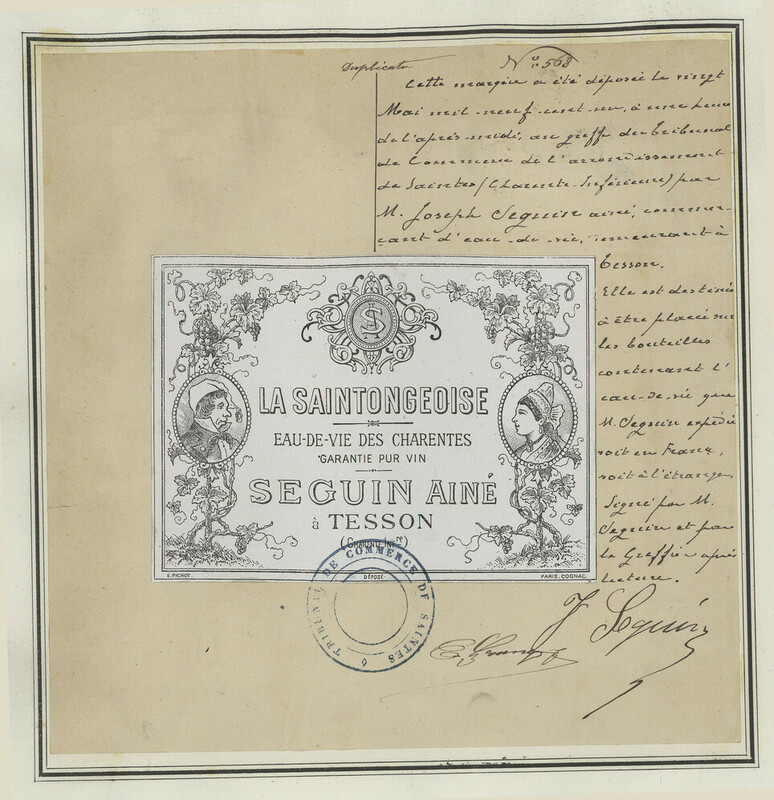 Duplicata
No 568
Cette marque a été déposée le vingt
Mai mil neuf cent un, à une heure
de l'après-midi, au greffe du Tribunal
de Commerce de l'arrondissement
de Saintes (Charente-Inférieure) par
M. Joseph Seguin ainé, commer-
çant d'eau-de-vie, demeurant à
Tesson.
Elle est destinée
à être placée sur
les bouteilles
contenant l'
eau-de-vie que
M. Seguin expédie
soit en France,
soit à l'étranger.
Signé par M.
Seguin et par
le Greffier après
lecture.
LA SAINTONGEOISE
EAU-DE-VIE DES CHARENTES
GARANTIE PUR VIN
SEGUIN AINÉ
à TESSON
(Charente Infre)
E. PICHOT.
DÉPOSÉ
PARIS, COGNAC.
TRIBUNAL DE COMMERCE DE SAINTES
J Seguin